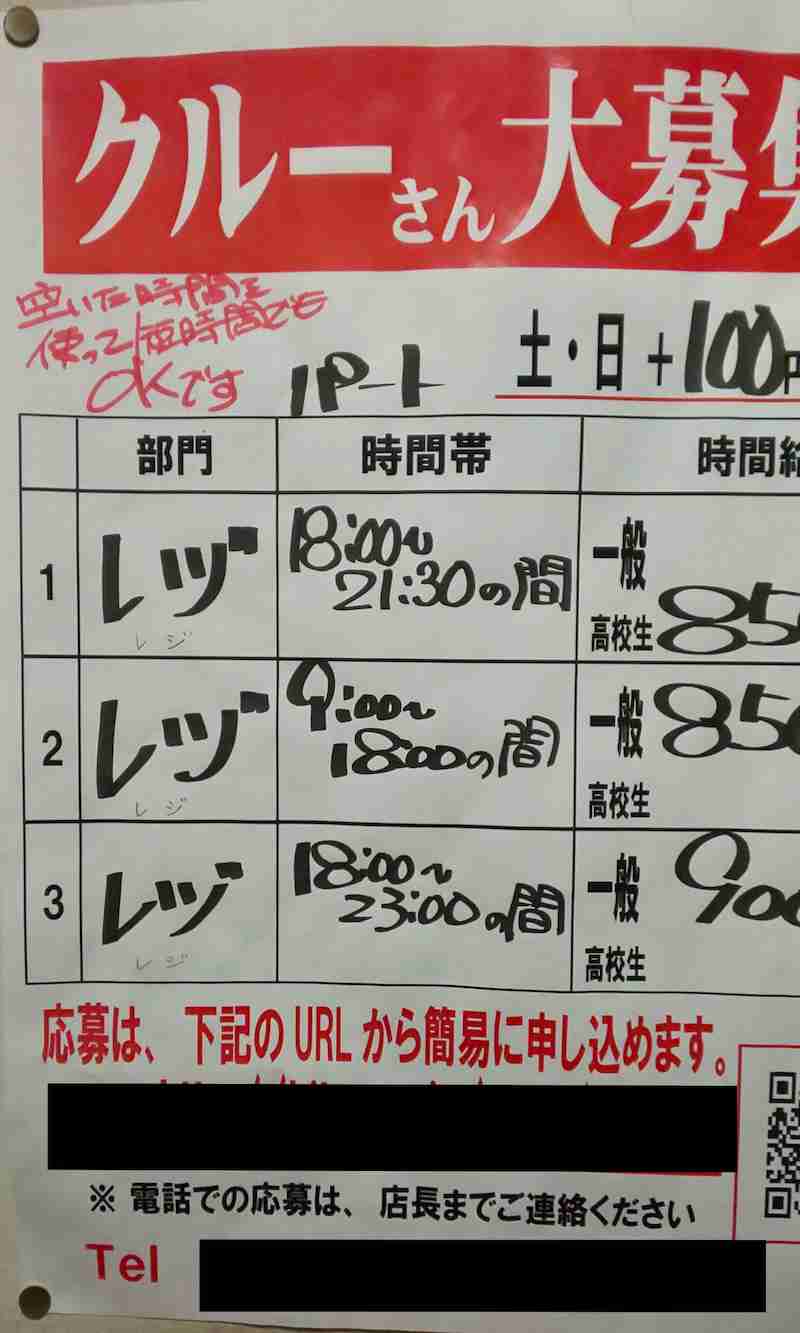 クルーさん大募集
空いた時間を
使って短時間でも
OKです
パート
土・日 + 100円
部門 時間帯 時間給
1 レヅ 18:00~ 21:30の間 一般 高校生 85
レジ
2 レヅ 9:00~ 18:00の間 一般 850 高校生
レジ
3 レヅ 18:00~ 23:00の間 一般 900 高校生
レジ
応募は、下記の URL から簡易に申し込めます。
※ 電話での応募は、店長までご連絡ください
Tel